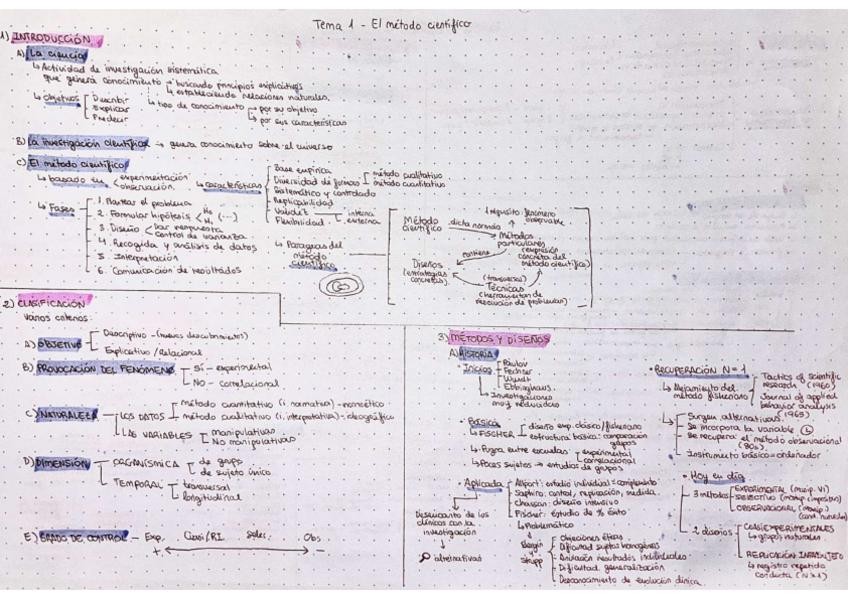 Tema 1 - El método científico
1) INTRODUCCIÓN
A) La ciencia
↳ Actividad de investigación sistemática
que genera conocimiento → buscando principios explicativos
↳ estableciendo relaciones naturales.
↳ objetivos
Describir
Explicar
Predecir
↳ tipo de conocimiento → por su objetivo
↳ por sus características
B) La investigación científica → genera conocimiento sobre el universo
C) El método científico
↳ basado en
experimentación
observación.
↳ características
Base empírica
Diversidad de formas
método cualitativo
método cuantitativo
Sistemático y controlado
Replicabilidad
Validez
interna
externa
Flexibilidad
↳ Fases
1. Plantear el problema
2. Formular hipótesis
H₀
H₁ (...)
3. Diseño
dar respuesta
control de varianza
4. Recogida y análisis de datos
5. Interpretación
6. Comunicación de resultados
↳ Paraguas del
método
científico
Método
científico
dicta normas
1 requisito: fenómeno
observable
Métodos
particulares
(expresión
concreta del
método científico)
contiene
Diseños
(estrategias
concretas)
(transversal)
Técnicas
(herramientas de
resolución de problemas)
2) CLASIFICACIÓN
Varios criterios:
A) OBJETIVO
Descriptivo - (nuevos descubrimientos)
Explicativo / Relacional
B) PROVOCACIÓN DEL FENÓMENO
SÍ - experimental
NO - correlacional
C) NATURALEZA
LOS DATOS
método cuantitativo (i. normativa) - nomotético
método cualitativo (i. interpretativa) - ideográfico
LAS VARIABLES
manipulativas
No manipulativas
D) DIMENSIÓN
ORGANÍSMICA
de grupo
de sujeto único
TEMPORAL
transversal
longitudinal
E) GRADO DE CONTROL - Exp. Cuasi/R.I. Selec. Obs
+ −
3) MÉTODOS Y DISEÑOS
A) HISTORIA
· Inicios
Paulov
Fechner
Wundt
Ebbinghaus
↳ Investigaciones
muy reducidas
· Básica
↳ FISCHER
diseño exp. clásico/fisheriano
estructura básica: comparación
grupos
↳ Pugna entre escuelas
experimental
correlacional
↳ Pocos sujetos → estudios de grupos
· Aplicada
Allport: estudio individual = complemento
Saphiro: control, replicación, medida
Chassan: diseño intensivo
Fischer: Estudio de % éxito
↳ Problemático
Desencanto de los
clínicos con la
investigación
alternativas
Bergin
Strupp
Objeciones éticas
Dificultad sujetos homogéneos
Anulación resultados individuales
Dificultad generalización
Desconocimiento de evolución clínica
· RECUPERACIÓN N = 1
↳ Alejamiento del
método fisheriano
Tactics of scientific
research (1960)
Journal of applied
behavior analysis
(1968)
Surgen alternativas.
Se incorpora la variable t
Se recupera el método observacional
(80s)
Instrumento básico = ordenador
· Hoy en día
3 métodos
EXPERIMENTAL (manip. VI)
SELECTIVO
OBSERVACIONAL
2 diseños
CUASIEXPERIMENTALES
↳ grupos naturales
REPLICACIÓN INTRASUJETO
↳ registro repetido
conducta (N=1)